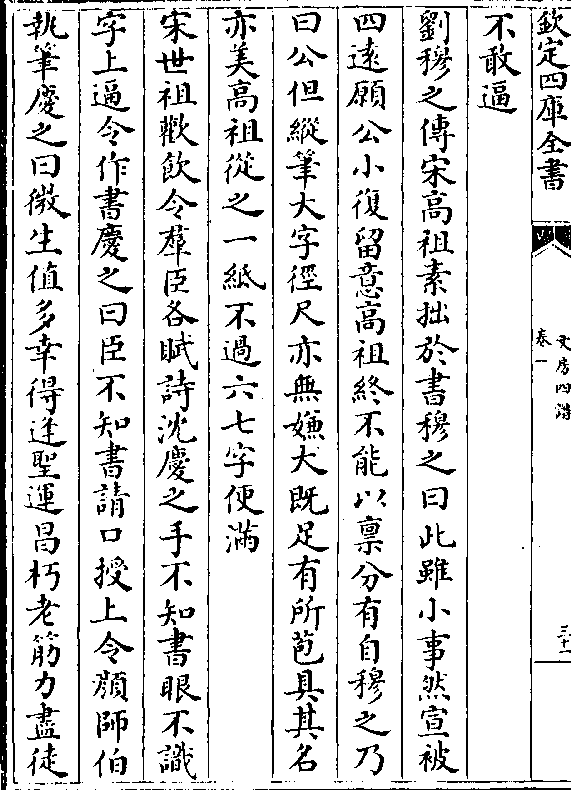 欽定四庫全書
文房四譜
卷一
三十一
不敢逼
劉穆之傳宋高祖素拙於書穆之曰此雖小事然宣被
四遠願公小復留意高祖終不能以禀分有自穆之乃
曰公但縱筆大字徑尺亦無嫌大既足有所苞具其名
亦美高祖從之一紙不過六七字便滿
宋世祖歡飲令羣臣各賦詩沈慶之手不知書眼不識
字上逼令作書慶之曰臣不知書請口授上令顔師伯
執筆慶之曰微生值多幸得逢聖運昌朽老筋力盡徒